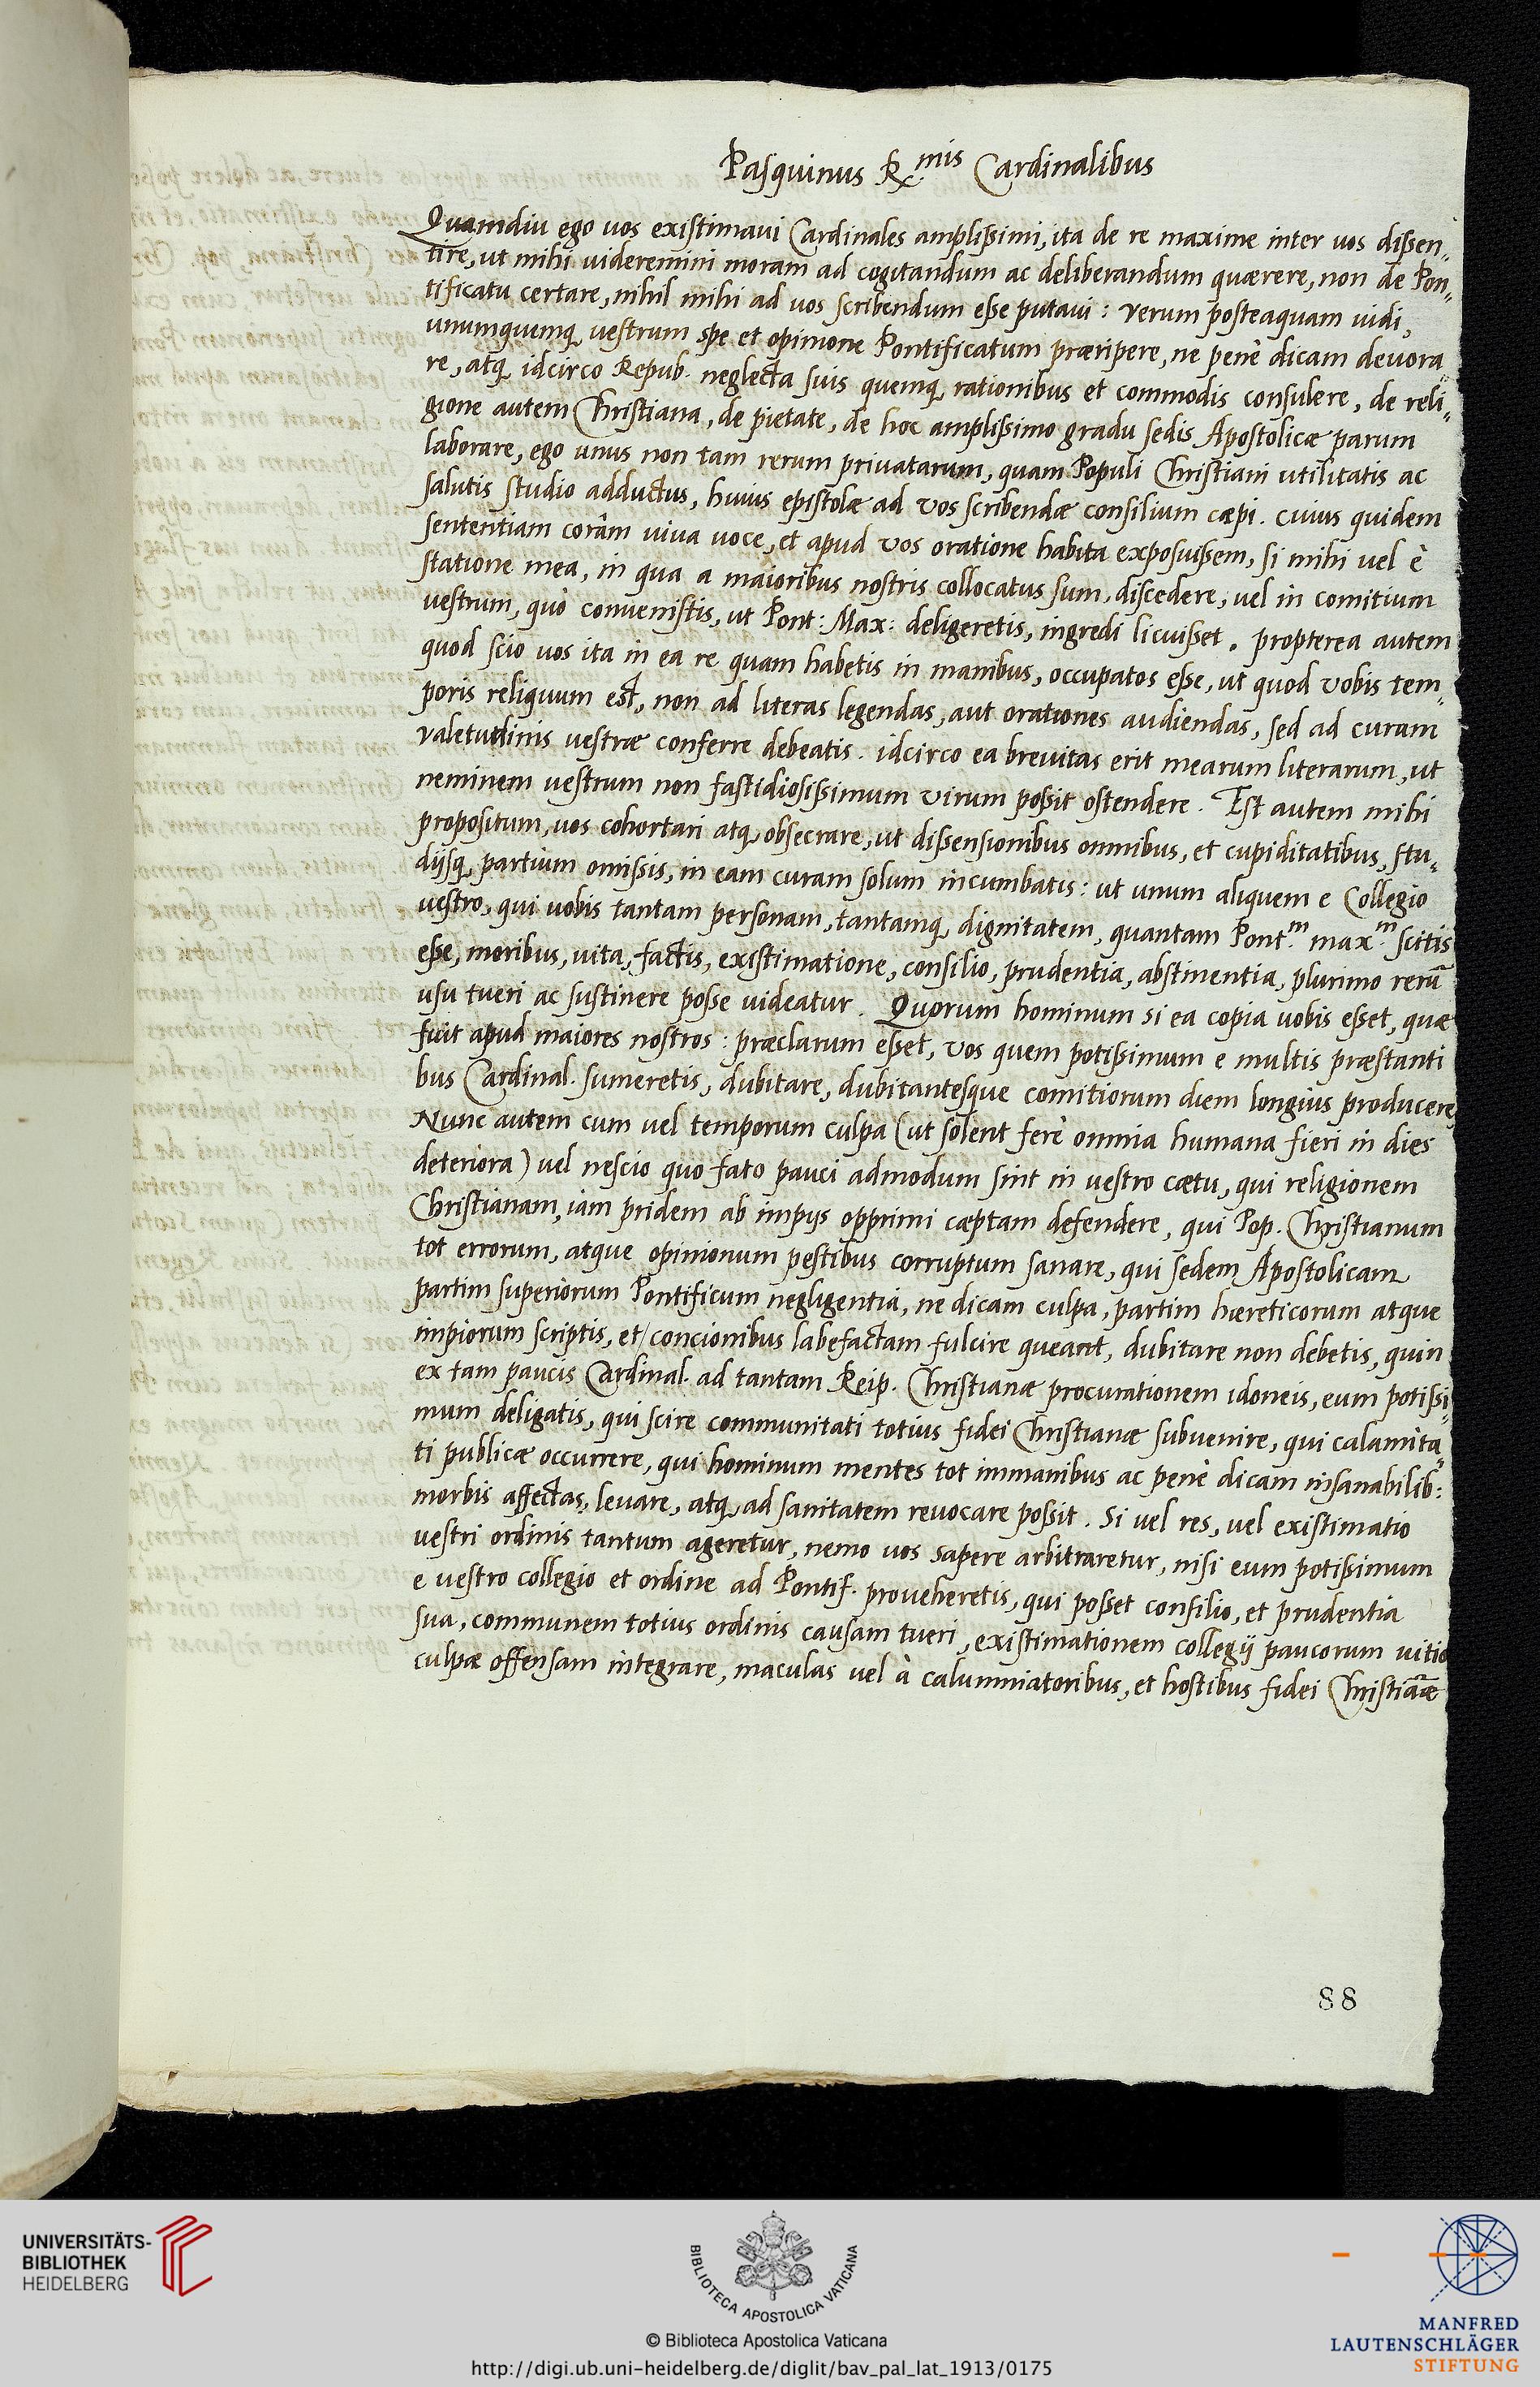 Pasquinus R.mis Cardinalibus
Quamdiu ego vos existimavi Cardinales amplissimi, ita de re maxime inter vos dissen„
tire, ut mihi videremini moram ad cogitandum ac deliberandum quærere, non de Pon„
tificatu certare, nihil mihi ad vos scribendum esse putavi: verum posteaquam vidi,
unumquemq; vestrum spe et opinione Pontificatum præripere, ne penè dicam devora„
re, atq; idcirco Repub. neglecta suis quemq; rationibus et commodis consulere, de reli„
gione autem Christiana, de pietate, de hoc amplissimo gradu sedis Apostolicæ parum
laborare, ego unus non tam rerum privatarum, quam Populi Christiani utilitatis ac
salutis studio adductus, huius epistolæ ad vos scribendæ consilium cæpi. cuius quidem
sententiam coràm viva voce, et apud vos oratione habita exposuissem, si mihi vel è
statione mea, in qua a maioribus nostris collocatus sum, discedere, vel in comitium
vestrum, quò convenistis, ut Pont: Max: deligeretis, ingredi licuisset. propterea autem
quod scio vos ita in ea re quam habetis in manibus, occupatos esse, ut quod vobis tem„
poris reliquum est, non ad literas legendas, aut orationes audiendas, sed ad curam
valetudinis vestræ conferre debeatis. idcirco ea brevitas erit mearum literarum, ut
neminem vestrum non fastidiosissimum virum possit ostendere. Est autem mihi
propositum, vos cohortari atq; obsecrare, ut dissensionibus omnibus, et cupiditatibus, stu„
dijsq; partium omissis, in eam curam solum incumbatis: ut unum aliquem e Collegio
vestro, qui vobis tantam personam, tantamq; dignitatem, quantam Pont.m max.m scitis
esse, moribus, vita, factis, existimatione, consilio, prudentia, abstinentia, plurimo rerũ
usu tueri ac sustinere posse videatur. Quorum hominum si ea copia vobis esset, quæ
fuit apud maiores nostros: præclarum esset, vos quem potissimum e multis præstanti
bus Cardinal. sumeretis, dubitare, dubitantesque comitiorum diem longius producere
Nunc autem cum vel temporum culpa (ut solent ferè omnia humana fieri in dies
deteriora) vel nescio quo fato pauci admodum sint in vestro cætu, qui religionem
Christianam, iam pridem ab impijs opprimi cæptam defendere, qui Pop. Christianum
tot errorum, atque opinionum pestibus corruptum sanare, qui sedem Apostolicam
partim superiorum Pontificum negligentia, ne dicam culpa, partim hæreticorum atque
impiorum scriptis, et concionibus labefactam fulcire queant, dubitare non debetis, quin
ex tam paucis Cardinal. ad tantam Reip. Christianæ procurationem idoneis, eum potissi„
mum deligatis, qui scire communitati totius fidei Christianæ subvenire, qui calamita„
ti publicæ occurrere, qui hominum mentes tot immanibus ac penè dicam insanabilib:
morbis affectas, levare, atq; ad sanitatem revocare possit. Si vel res, vel existimatio
vestri ordinis tantum ageretur, nemo vos sapere arbitraretur, nisi eum potissimum
e vestro collegio et ordine ad Pontif. proveheretis, qui posset consilio, et prudentia
sua, communem totius ordinis causam tueri, existimationem collegij paucorum vitio
culpæ offensam integrare, maculas vel à calumniatoribus, et hostibus fidei Christianæ
88
UNIVERSITÄTS-
BIBLIOTHEK
HEIDELBERG
BIBLIOTECA APOSTOLICA VATICANA
© Biblioteca Apostolica Vaticana
http://digi.ub.uni-heidelberg.de/diglit/bav_pal_lat_1913/0175
MANFRED
LAUTENSCHLÄGER
STIFTUNG